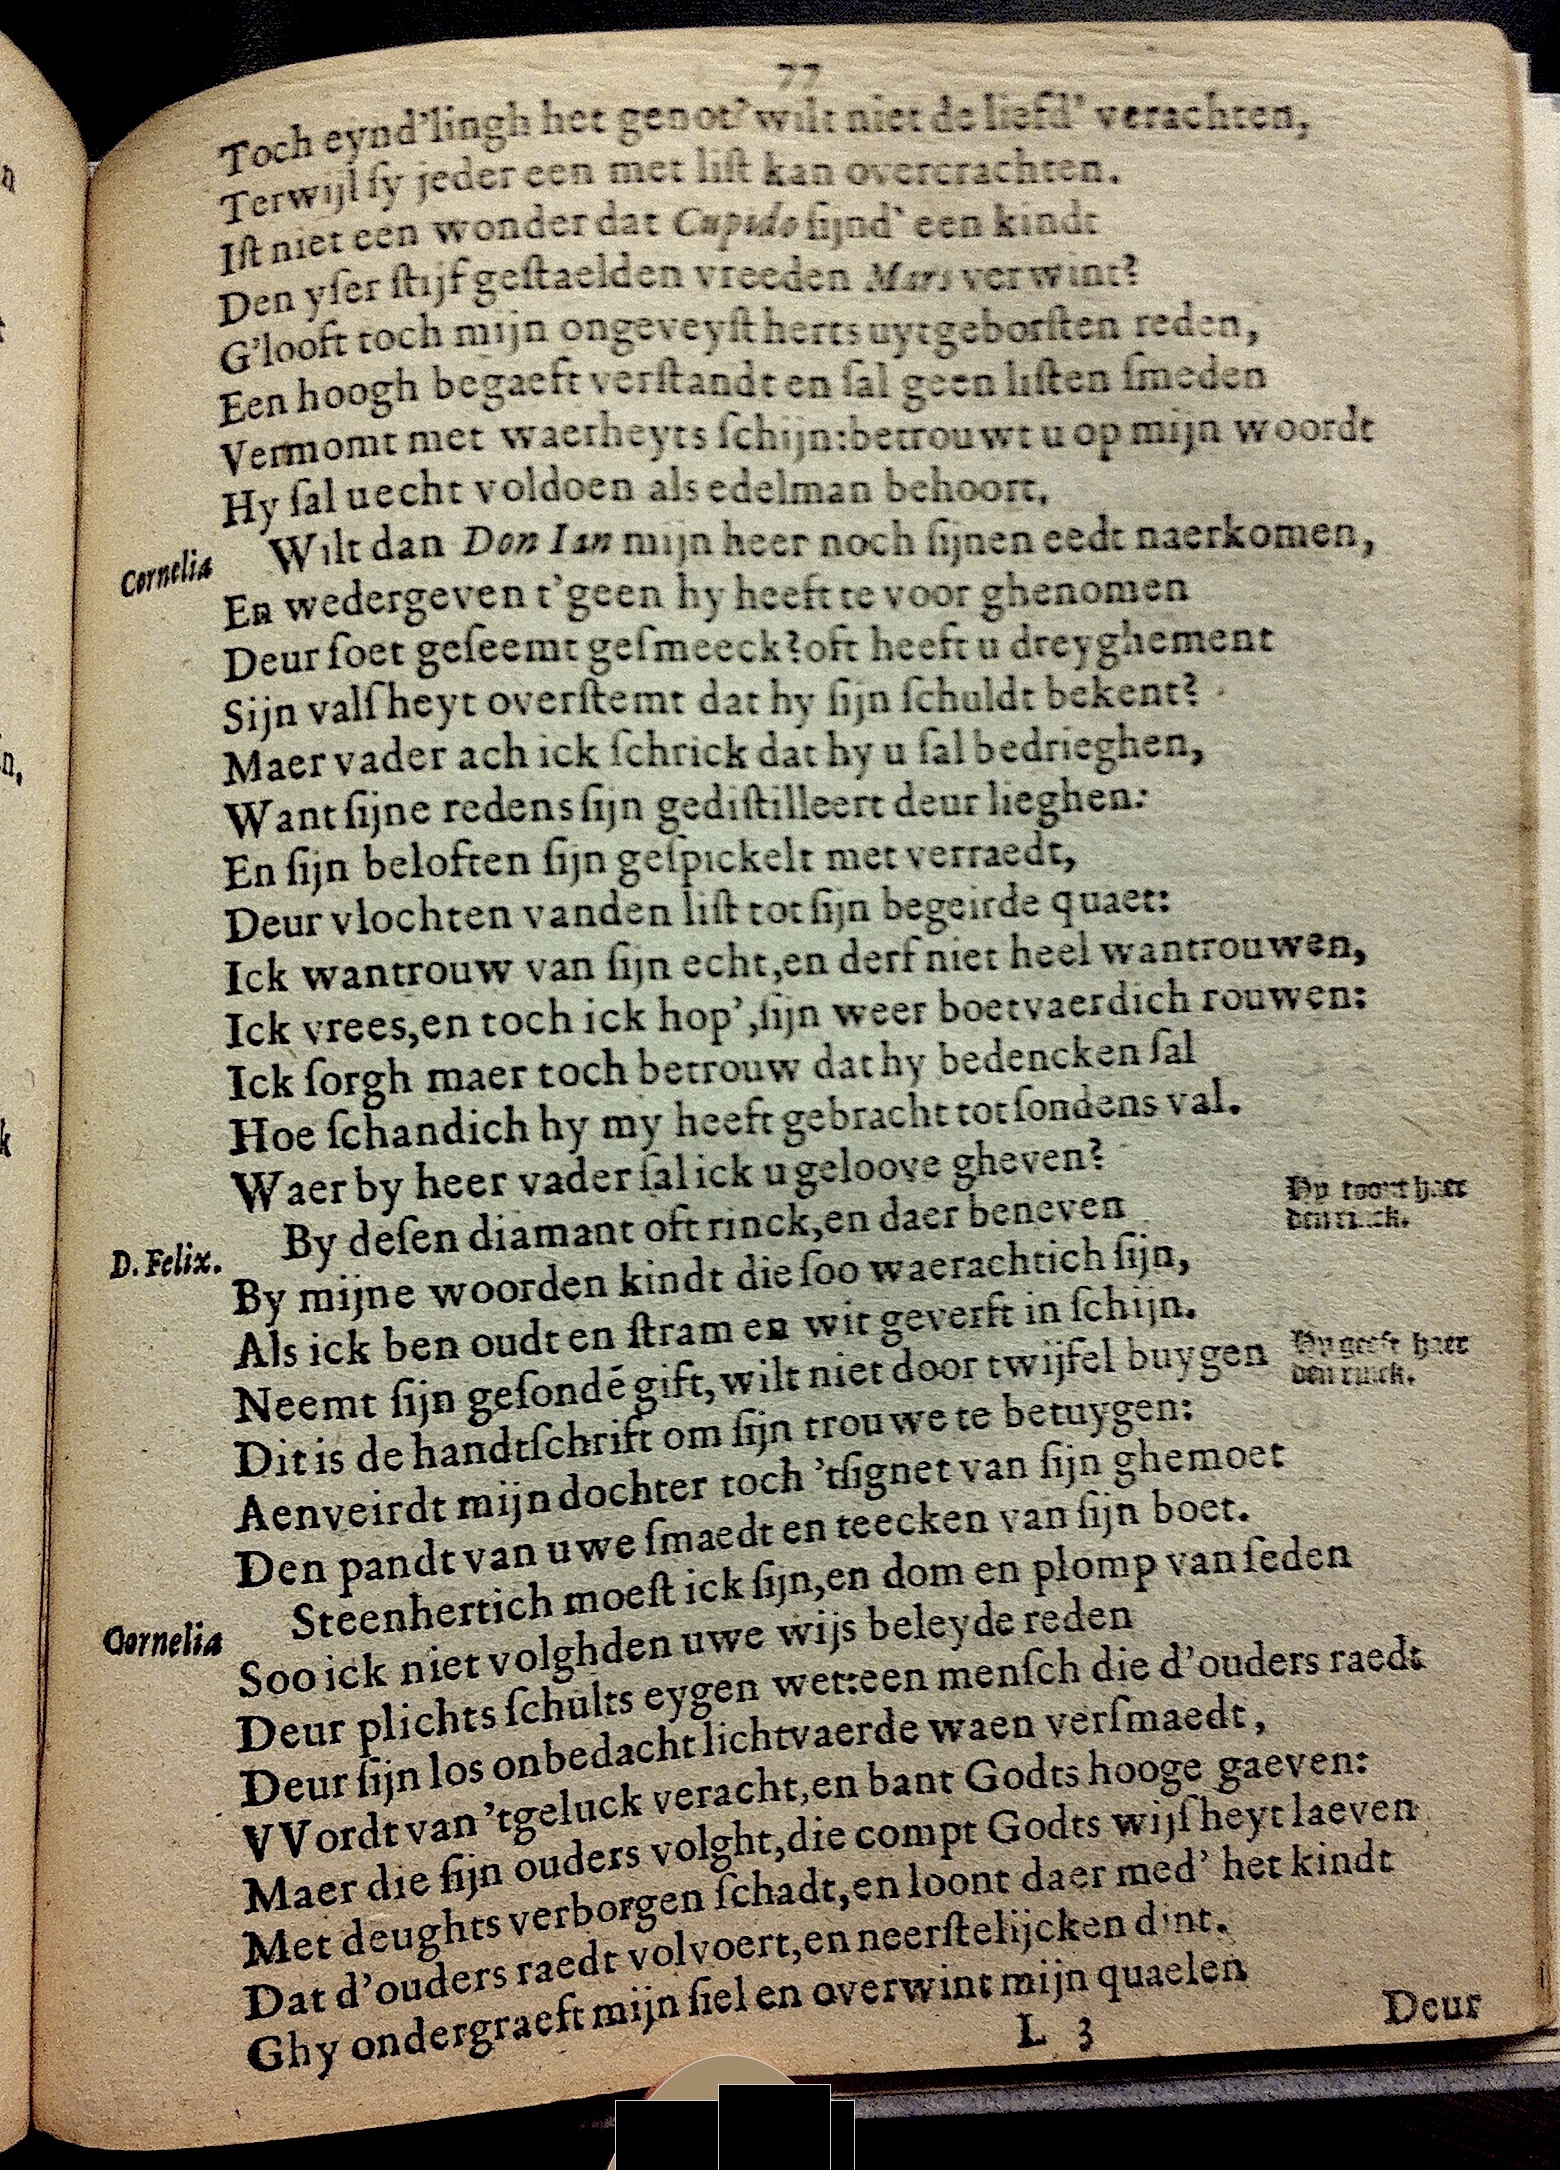 77
Toch eynd'lingh het genot? wilt niet de liefd' verachten,
Terwijl ſy jeder een met liſt kan overcrachten.
Iſt niet een wonder dat Cupido ſijnd' een kindt
Den yſer ſtijf geſtaelden vreeden Mars verwint?
G'looft toch mijn ongeveyſt herts uytgeborſten reden,
Een hoogh begaeft verſtandt en ſal geen liſten ſmeden
Vermomt met waerheyts ſchijn: betrouwt u op mijn woordt
Hy ſal u echt voldoen als edelman behoort.
Cornelia Wilt dan Don Ian mijn heer noch ſijnen eedt naerkomen,
En wedergeven t'geen hy heeft te voor ghenomen
Deur ſoet geſeemt geſmeeck? oft heeft u dreyghement
Sijn valſheyt overſtemt dat hy ſijn ſchuldt bekent?
Maer vader ach ick ſchrick dat hy u ſal bedrieghen,
Want ſijne redens ſijn gediſtilleert deur lieghen:
En ſijn beloften ſijn geſpickelt met verraedt,
Deur vlochten vanden liſt tot ſijn begeirde quaet:
Ick wantrouw van ſijn echt, en derf niet heel wantrouwen,
Ick vrees, en toch ick hop', ſijn weer boetvaerdich rouwen:
Ick ſorgh maer toch betrouw dat hy bedencken ſal
Hoe ſchandich hy my heeft gebracht tot ſondens val.
Waer by heer vader ſal ick u geloove gheven?
D. Felix. By deſen diamant oft rinck, en daer beneven
Hy toont haer
den rinck.
By mijne woorden kindt die ſoo waerachtich ſijn,
Als ick ben oudt en ſtram en wit geverft in ſchijn.
Neemt ſijn geſondē gift, wilt niet door twijfel buygen
Hy geeft haer
den rinck.
Dit is de handtſchrift om ſijn trouwe te betuygen:
Aenveirdt mijn dochter toch 'tſignet van ſijn ghemoet
Den pandt van uwe ſmaedt en teecken van ſijn boet.
Cornelia Steenhertich moeſt ick ſijn, en dom en plomp van ſeden
Soo ick niet volghden uwe wijs beleyde reden
Deur plichts ſchults eygen wet: een menſch die d'ouders raedt
Deur ſijn los onbedacht lichtvaerde waen verſmaedt,
VVordt van 'tgeluck veracht, en bant Godts hooge gaeven:
Maer die ſijn ouders volght, die compt Godts wijſheyt laeven
Met deughts verborgen ſchadt, en loont daer med' het kindt
Dat d'ouders raedt volvoert, en neerſtelijcken dint.
Ghy ondergraeft mijn ſiel en overwint mijn quaelen
L 3
Deur